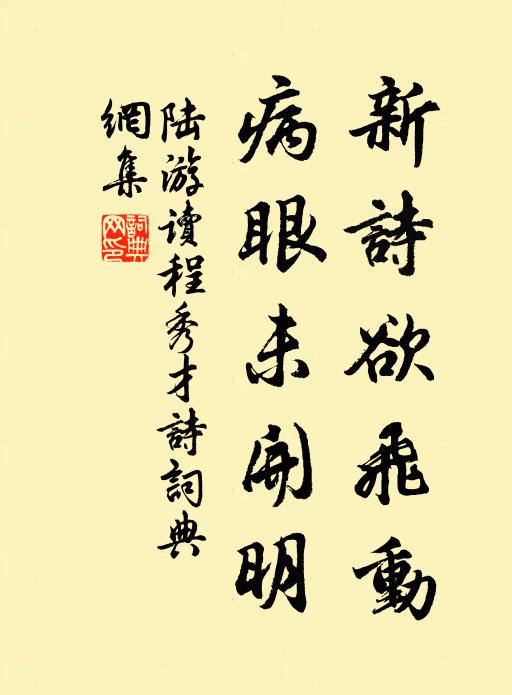 新詩欲飛動
病眼未開明
陆游讀程秀才詩詞典
網集
詞典网印